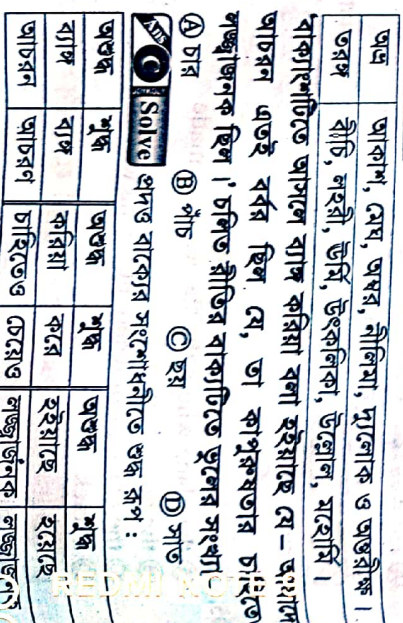 অভ্র | আকাশ, মেঘ, অম্বর, নীলিমা, দ্যুলোক ও অন্তরীক্ষ।
তরঙ্গ | বীচি, লহরী, ঊর্মি, উৎকলিকা, উল্লোল, মহোর্মি।
বাক্যাংশটিতে আসলে ব্যাঙ্গ করিয়া বলা হইয়াছে যে –
আচরন এতই বর্বর ছিল যে, তা কাপুরুষতার চাইতেও
লজ্জাজনক ছিল।' চলিত রীতির বাক্যটিতে ভুলের সংখ্যা
Ⓐ চার Ⓑ পাঁচ Ⓒ ছয় Ⓓ সাত
ANS Ⓒ Solve প্রদত্ত বাক্যের সংশোধনীতে শুদ্ধ রূপ :
অশুদ্ধ | শুদ্ধ | অশুদ্ধ | শুদ্ধ | অশুদ্ধ | শুদ্ধ
ব্যাঙ্গ | ব্যঙ্গ | করিয়া | করে | হইয়াছে | হয়েছে
আচরন | আচরণ | চাইতেও | চেয়েও
REDMI NOTE 8